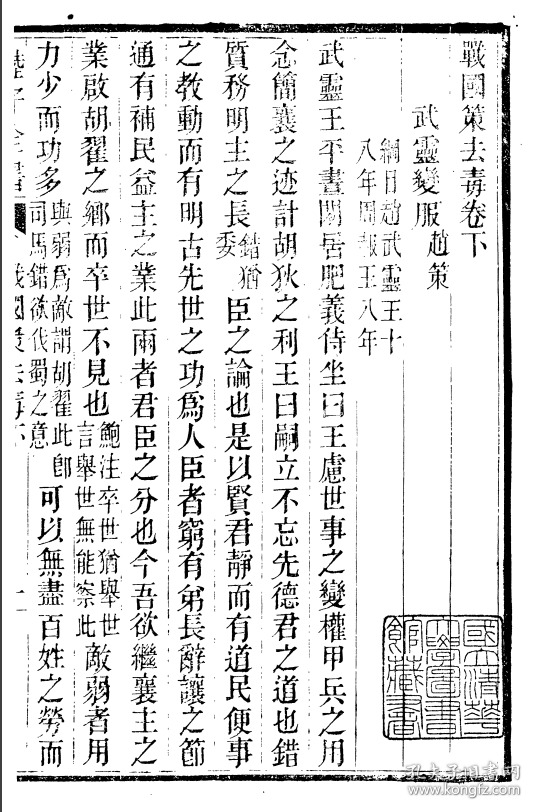 戰國策去毒卷下
武靈變服趙策
綱目趙武靈王十
八年周赧王八年
武靈王平晝閒居肥義侍坐曰王慮世事之變權甲兵之用
念簡襄之迹計胡狄之利王曰嗣立不忘先德君之道也錯
質務明主之長錯猶
委
臣之論也是以賢君靜而有道民便事
之教動而有明古先世之功爲人臣者窮有弟長辭讓之節
通有補民益主之業此兩者君臣之分也今吾欲繼襄主之
業啟胡翟之鄉而卒世不見也
鮑注卒世猶舉世
言舉世無能察此
敵弱者用
力少而功多
與弱爲敵謂胡翟此卽
司馬錯欲伐蜀之意
可以無盡百姓之勞而
戰國策去毒下
國立清華
大學圖書
館藏書
孔夫子旧书网
www.kongfz.com